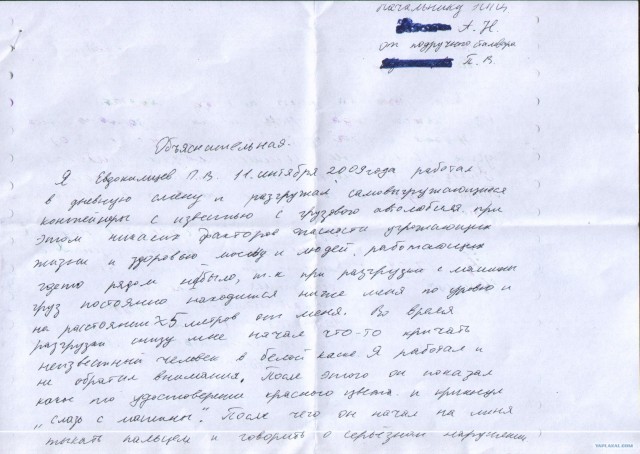 начальнику ППЦ
А. Н.
от подручного сталевара
П. В.
Объяснительная.
Я Евдокимцев П. В. 11 сентября 2009 года работал
в дневную смену и разгружал самовыгружающиеся
контейнеры с известию с грузового автомобиля. при
этом никаких факторов опасности угрожающих
жизни и здоровью моему и людей, работающих
где-то рядом не было, т.к при разгрузки с машины
груз постоянно находился ниже меня по уровню и
на расстоянии 5 метров от меня. Во время
разгрузки снизу мне начал что-то кричать
неизвестный человек в белой каске. Я работал и
не обратил внимания. После этого он показал
какое то удостоверение красного цвета и крикнул
„слазь с машины". После чего он начал на меня
тыкать пальцем и говорить о серьёзном нарушении
YAPLAKAL.COM